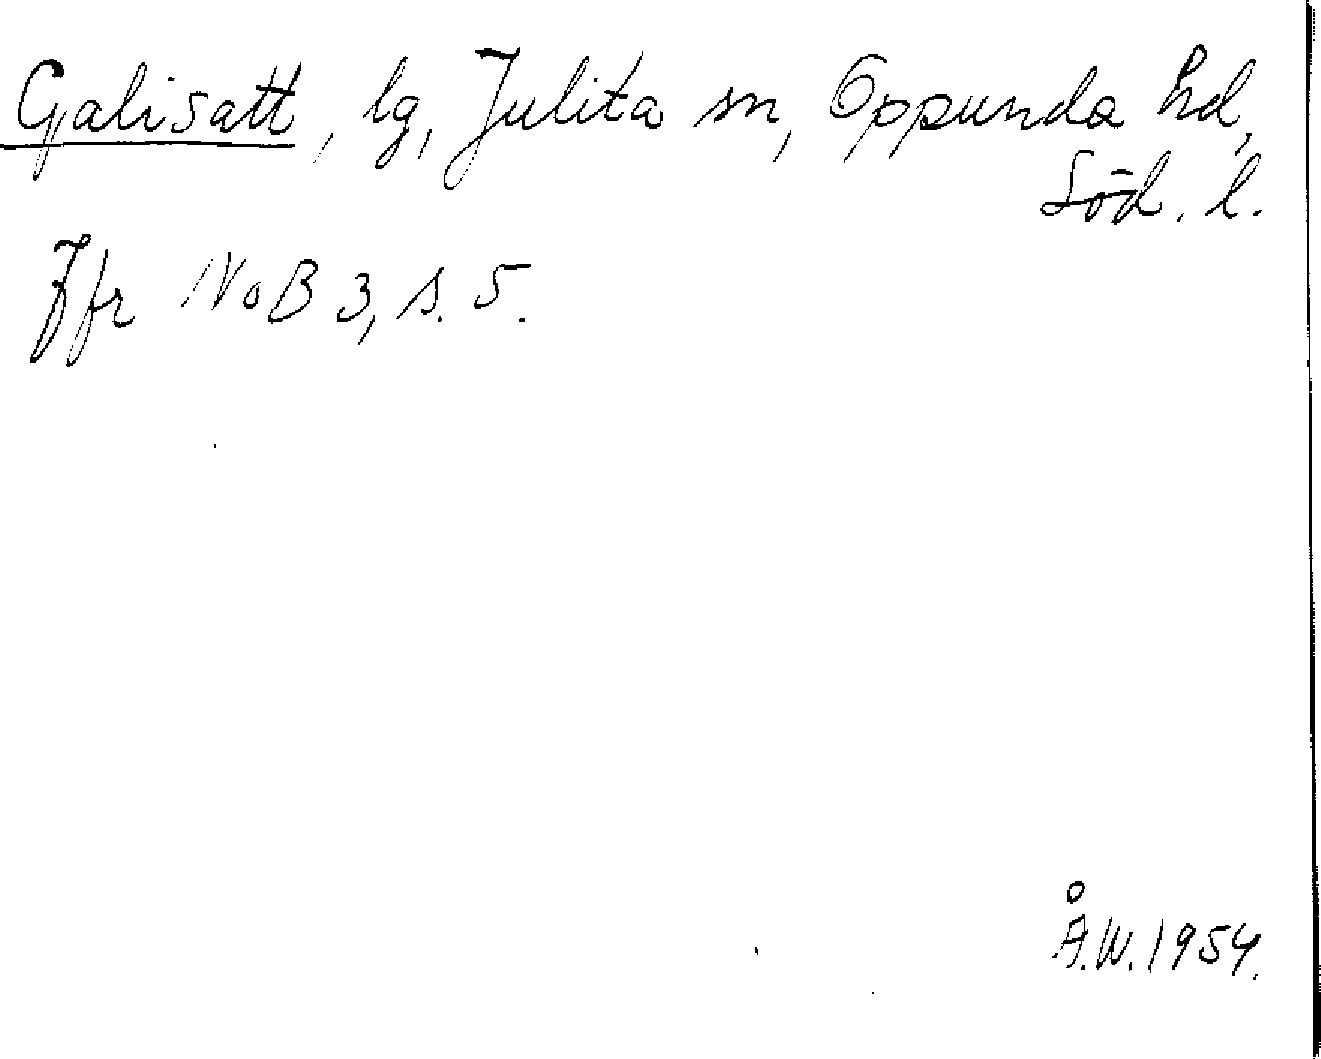 Galisatt, lg, Julita sn, Oppunda hd,
Söd. l.
Jfr NoB 3, s. 5.
Å.W. 1954.